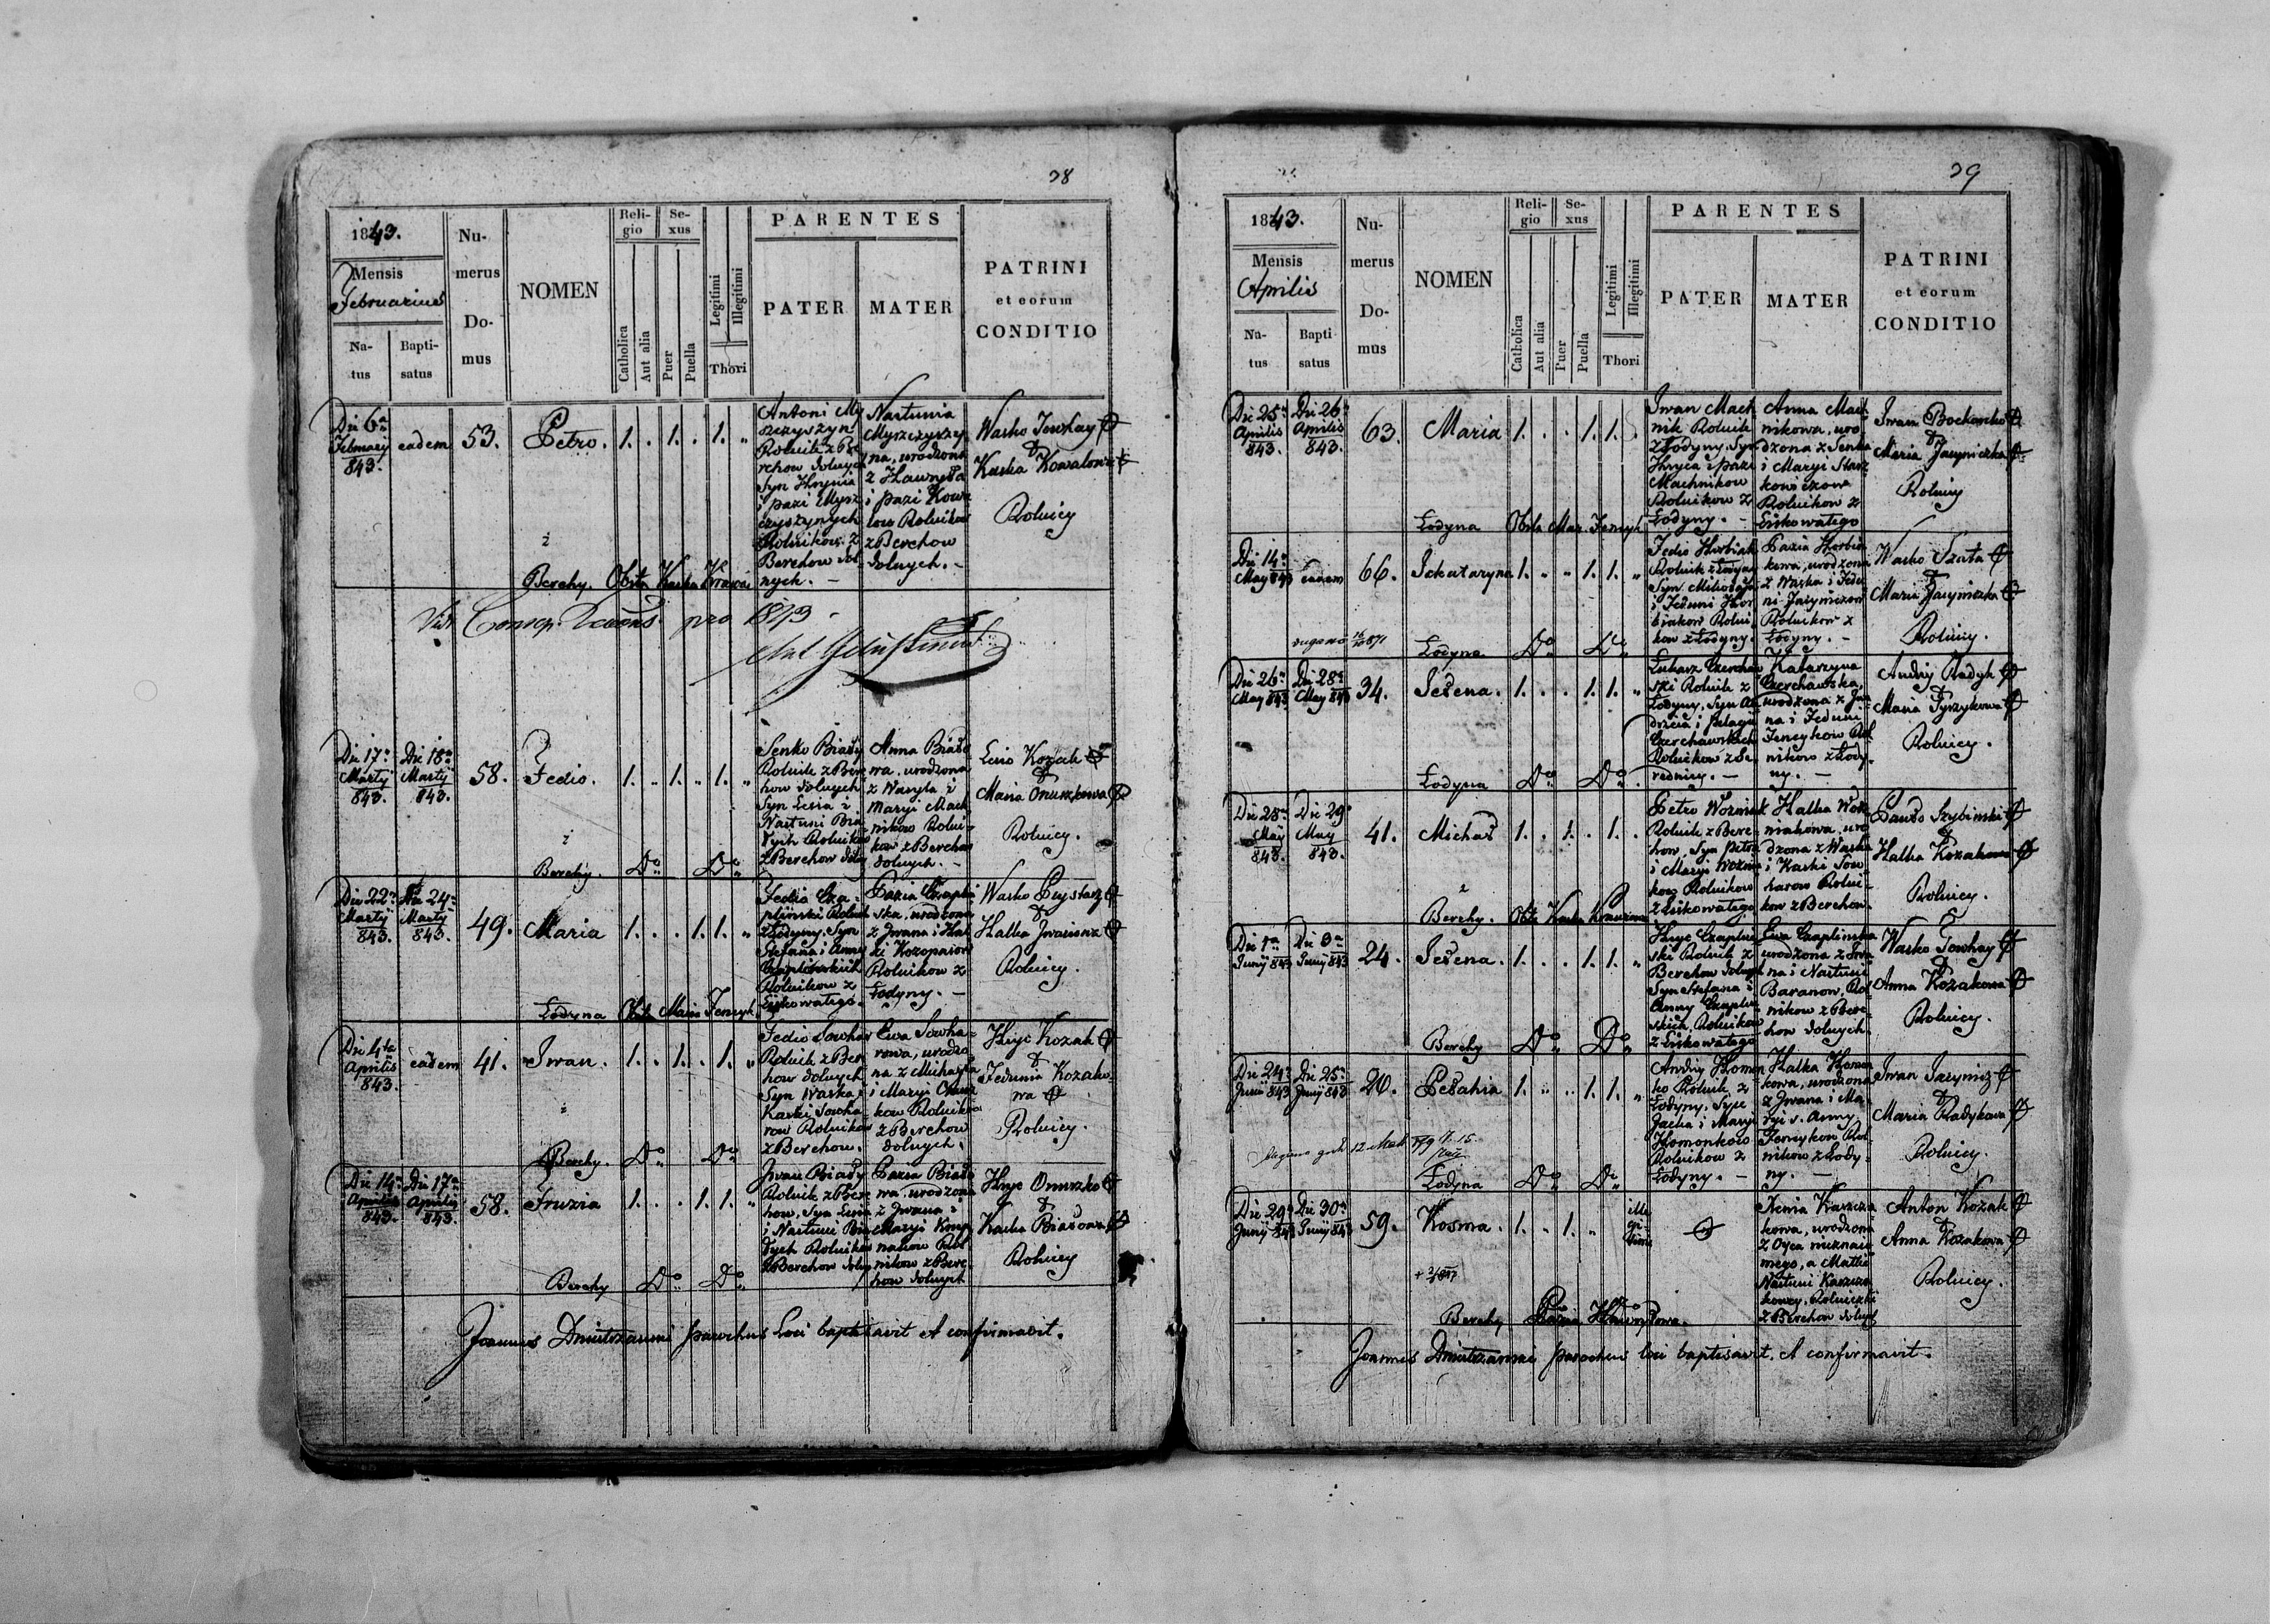 28
1843.
Mensis
Februarius
Na-
tus
Bapti-
satus
Nu-
merus
Do-
mus
NOMEN
Reli-
gio
Catholica
Aut alia
Se-
xus
Puer
Puella
Legitimi
Illegitimi
Thori
PARENTES
PATER
MATER
PATRINI
et eorum
CONDITIO
Die 6a
Februarij
843.
eadem
53.
Petro.
1. . 1. . 1. „
Antoni My
szczyszyn
Rolnik z Be
rchow dolnych
Syn Hrynia
i pazi Mysz
czyszynych
Rolnikow z
Berchow dol
nych. —
Nastunia
Myszczyszy
na, urodzona
z Hawryła
i pazi Kowa
low Rolnikow
z Berchow
dolnych. —
Wasko Sowhay
&
Kaska Kowalowa
Rolnicy
Berehy. Obst. Kaska
Vidi Consp. Decans. pro 1843
Die 17a
Martij
843.
Die 18a
Martij
843.
58.
Fedio.
1. „ 1. „ 1. „
Senko Biały
Rolnik z Ber
how dolnych
Syn Lesia i
Nastuni Bia
łych Rolnikow
z Berchow doln
Anna Biało
wa, urodzona
z Wasyla i
Maryi Mach
nikow Rolni-
kow z Berchow
dolnych. —
Lesio Kozak
&
Maria Onuszkowa
Rolnicy.
Berehy. Do Do
Die 22a
Martij
843.
Die 24a
Martij
843.
49.
Maria
1. . . 1. 1. „
Fedio Cza-
pliński Rolnik
z Łodyny, Syn
Stefana i Anny
Czaplińskich
Rolnikow z
Liskowatego.
Pazia Czapliń
ska, urodzona
z Jwana i Hal
ki
Rolnikow z
Łodyny. —
Wasko Prystasz
&
Halka Jwasiowa
Rolnicy.
Łodyna Obst. Maria Fencyk.
Die 4ta
Aprilis
843.
eadem
41.
Iwan.
1. . 1. . 1. „
Fedio Sowhar
Rolnik z Ber
how dolnych
Syn Waska i
Kaski Sowha
row Rolnikow
z Berchow.
Ewa Sowha=
rowa, urodzo
na z Michayła
i Maryi
kow Rolnikow
z Berchow
dolnych.
Hryc Kozak
&
Fedunia Kozako
wa
Rolnicy.
Berehy. Do Do
Die 14a
Aprilis
843.
Die 17a
Aprilis
843.
58.
Fruzia
1. . . 1. 1. „
Jwan Biały
Rolnik z Ber
how, Syn Lesia
i Nastuni Bia
łych Rolnikow
z Berchow doln
Pazia Biało
wa, urodzona
z Jwana i
Maryi
Rol
nikow z Ber
how dolnych
Hryc Onuszko
&
Kaska Białowa
Rolnicy
Berehy Do Do
Joannes Dmitrzanski parochus Loci baptisavit et confirmavit.
29
1843.
Mensis
Aprilis
Na-
tus
Bapti
satus
Nu-
merus
Do-
mus
NOMEN
Reli-
gio
Catholica
Aut alia
Se-
xus
Puer
Puella
Legitimi
Illegitimi
Thori
PARENTES
PATER
MATER
PATRINI
et eorum
CONDITIO
Die 25a
Aprilis
843.
Die 26a
Aprilis
843.
63.
Maria
1. . . 1. 1. .
Iwan Mach
nik Rolnik
z Łodyny, Syn
Hryca i pazi
Machnikow
Rolnikow z
Łodyny. —
Anna Mach
nikowa, uro
dzona z Senka
i Maryi Starz
kowiczow
Rolnikow z
Liskowatego
Iwan
&
Maria Jacyniczka
Rolnicy
Łodyna Obst. Mar. Fencyk
Die 14a
May 843
eadem
66.
Iekataryna
1. „ „ 1. 1. „
Fedio Horbiak
Rolnik z Łodyny
Syn Mikołaja
i Feduni Hor
biakow Rolni
kow z Łodyny.
Pazia Horbia
kowa, urodzona
z Waska i Fedu
ni Jacyniczow
Rolnikow z
Łodyny. —
Wasko Szata
&
Maria Jacyniczka
Rolnicy.
Łodyna Do Do
Die 26a
May 843
Die 28a
May 843
34.
Jełena.
1. . . 1. 1. „
Łukasz Czerchaw
ski Rolnik z
Łodyny, Syn An
drzeia i pelagii
Czerchawskich
Rolnikow z Se
rednicy. —
Katarzyna
Czerchawska,
urodzona z Jwa
na i Feduni
Fencykow Rol
nikow z Łody
ny. —
Andrij Radyk
&
Maria Pyrzykowa
Rolnicy.
Łodyna Do Do
Die 28a
May
843.
Die 29a
May
843.
41.
Michał
1. . 1. . 1. .
Petro Wozniak
Rolnik z Bere
how, Syn Petra
i Maryi Woznia
kow Rolnikow
z Liskowatego
Halka Woz
niakowa, uro
dzona z Waska
i Kaski Sow
harow Rolni
kow z Berchow.
Pawło Szybinski
&
Halka Kozakowa
Rolnicy.
Berehy. Obst. Kaska
Die 1a
Junij 843
Die 3a
Junij 843
24.
Jełena.
1. . . 1. 1. „
Hryc Czapliń
ski Rolnik z
Berchow dolnych
Syn Stefana i
Anny Czapliń
skich, Rolnikow
z Liskowatego
Ewa Czaplinska
urodzona z Iwa
na i Nastuni
Baranow, Rol
nikow z Bere
how dolnych.
Wasko Sowhay
&
Anna Kozakowa
Rolnicy.
Berehy Do Do
Die 24a
Junij 843
Die 25a
Junij 843
20.
Pełahia
1. „ „ 1. 1. „
Andrij Homon
ko Rolnik z
Łodyny, Syn
Jacka i Maryi
Homonkow
Rolnikow z
Łodyny. —
Halka Homon
kowa, urodzona
z Jwana i Ma
ryi v. Anny
Fencykow Rol
nikow z Łody-
ny. —
Iwan Jacynicz
&
Maria Radykowa
Rolnicy.
Łodyna Do Do
Die 29a
Junij 843
Die 30a
Junij 843
59.
Kosma.
1. „ 1. „
ille
gi
timi
Xenia
kowa, urodzona
z Oyca nieznaio
mego, a Matki
Nastuni
kowey, Rolniczki
z Berchow dolnych
Anton Kozak
&
Anna Kozakowa
Rolnicy.
Berehy Pazia Hawryłowa.
Joannes Dmitrzanski parochus loci baptisavit et confirmavit.